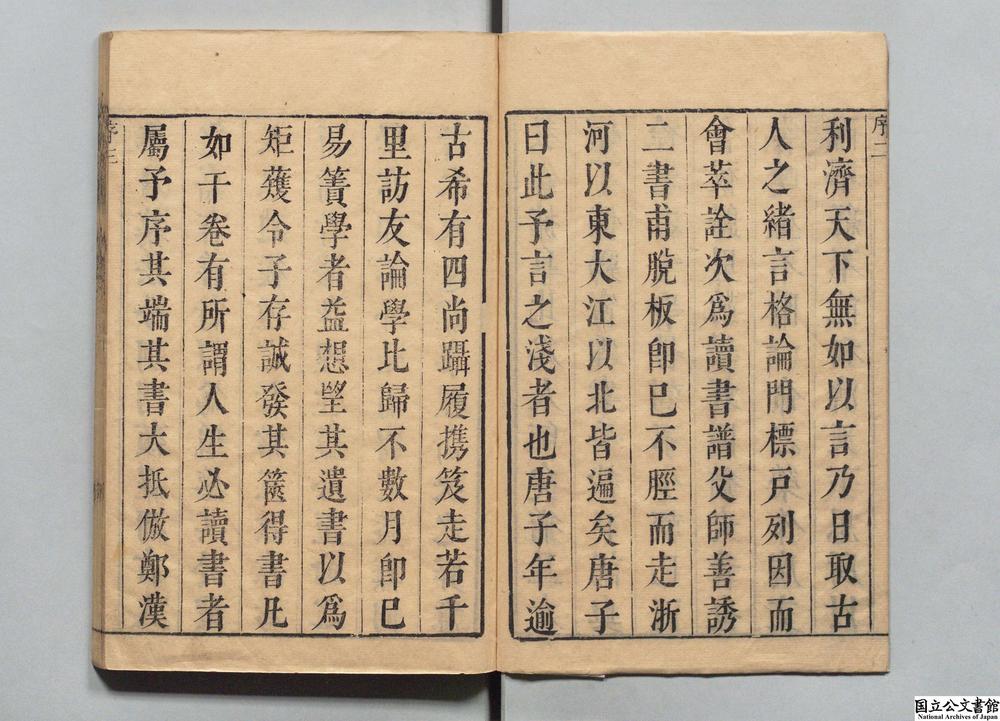 序二
利濟天下無如以言乃日取古
人之緒言格論門標戸列因而
會萃詮次爲讀書譜父師善誘
二書甫脫板卽已不脛而走浙
河以東大江以北皆遍矣唐子
曰此予言之淺者也唐子年逾
古希有四尚躡履携笈走若干
里訪友論學比歸不數月卽已
易簀學者益想望其遺書以爲
矩矱令子存誠發其篋得書凡
如干卷有所謂人生必讀書者
屬予序其端其書大抵倣鄭漢
序三
国立公文書館
National Archives of Japan